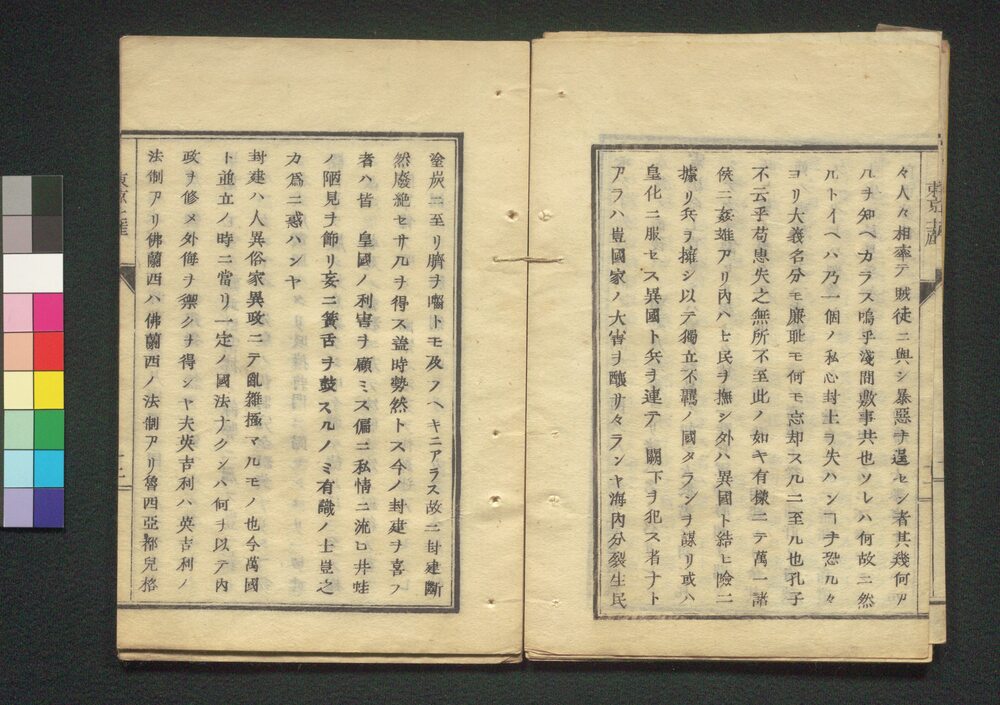 々人々相率テ賊徒ニ與シ暴惡ヲ逞セン者其幾何ア
ルヲ知ヘカラス嗚乎淺間敷事共也ソレハ何故ニ然
ルトイヘハ乃一個ノ私心封土ヲ失ハンヿヲ恐ルヽ
ヨリ大義名分モ廉耻モ何モ忘却スルニ至ル也孔子
不云乎苟患失之無所不至此ノ如キ有樣ニテ萬一諸
侯ニ姦雄アリ内ハヒ民ヲ撫シ外ハ異國ト結ヒ險ニ
據リ兵ヲ擁シ以テ獨立不羈ノ國タランヲ謀リ或ハ
皇化ニ服セス異國ト兵ヲ連テ 闕下ヲ犯ス者ナト
アラハ豈國家ノ大害ヲ釀サヽランヤ海内分裂生民
塗炭ニ至リ臍ヲ噛トモ及フヘキニアラス故ニ封建斷
然廢絶セサルヲ得ス蓋時勢然トス今ノ封建ヲ喜フ
者ハ皆 皇國ノ利害ヲ顧ミス偏ニ私情ニ流レ井蛙
ノ陋見ヲ飾リ妄ニ簧舌ヲ鼓スルノミ有識ノ士豈之
カ爲ニ惑ハンヤ
封建ハ人異俗家異政ニテ亂雜極マルモノ也今萬國
ト並立ノ時ニ當リ一定ノ國法ナクンハ何ヲ以テ内
政ヲ修メ外侮ヲ禦クヲ得ンヤ夫英吉利ハ英吉利ノ
法制アリ佛蘭西ハ佛蘭西ノ法制アリ魯西亞都兒格